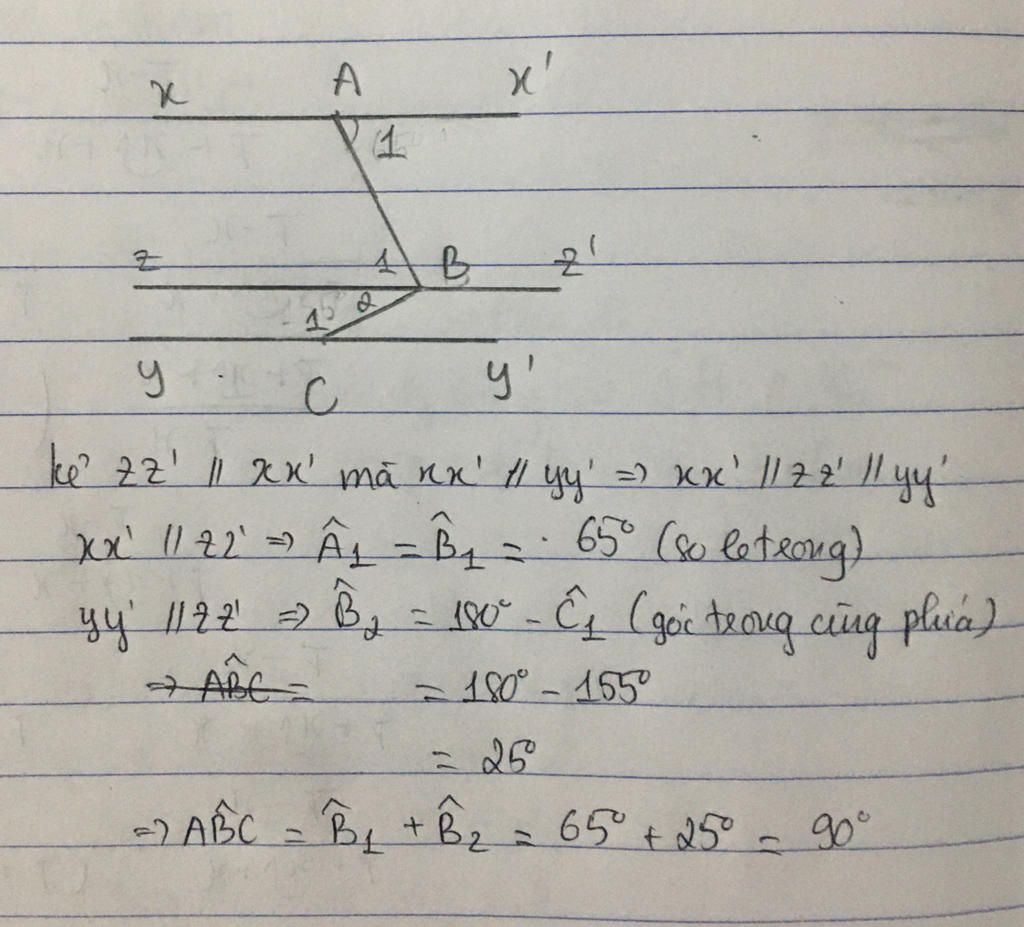 x A x'
1
z 1 B z'
1 2
y C y'
kẻ zz' // xx' mà xx' // yy' => xx' // zz' // yy'
xx' // zz' => Â₁ = B̂₁ = 65° (so le trong)
yy' // zz' => B̂₂ = 180° - Ĉ₁ (góc trong cùng phía)
=> AB̂C = = 180° - 155°
= 25°
=> AB̂C = B̂₁ + B̂₂ = 65° + 25° = 90°